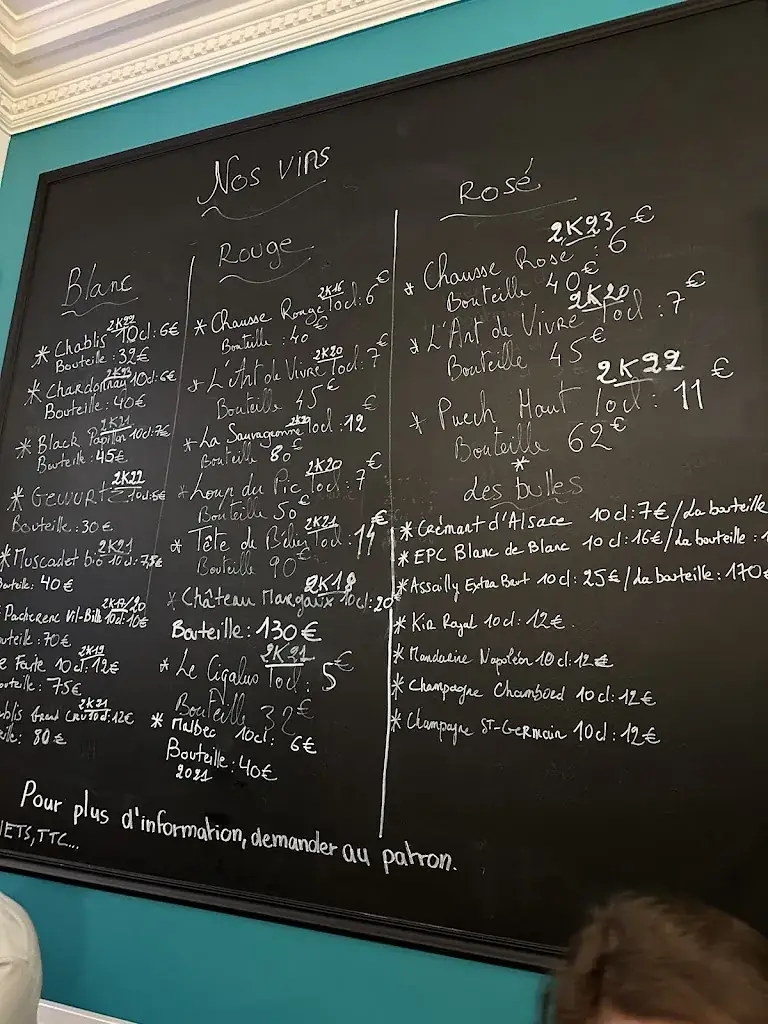 Nos vins
Blanc
2K22
* Chablis 10cl : 6€
Bouteille : 32€
2K23
* Chardonnay 10cl : 6€
Bouteille : 40€
2K21
* Black Papillon 10cl : 7€
Bouteille : 45€
2K22
* Gewurtz 10cl : 6€
Bouteille : 30€
2K21
* Muscadet bio 10cl : 7,5€
Bouteille : 40€
Pacherenc Vil-Bilh 10cl : 10€
uteille : 70€
e Faite 10cl : 12€
outeille : 75€
2K21
ablis Grand Cru 10cl : 12€
eille : 80€
Rouge
2K16
* Chausse Rouge 10cl : 6€
Bouteille : 40€
2K20
* L'Art de Vivre 10cl : 7€
Bouteille 45€
* La Sauvageonne 10cl : 12€
Bouteille 80€
2K20
* Loup du Pic 10cl : 7€
Bouteille 50€
2K21
* Tête de 10cl : 14€
Bouteille 90€
2K18
* Château Margaux 10cl : 20€
Bouteille : 130€
2K21
* Le Cigalus 10cl : 5€
Bouteille 32€
* Malbec 10cl : 6€
Bouteille : 40€
2021
Rosé
2K23
* Chausse Rosé : 6€
Bouteille 40€
2K20
* L'Art de Vivre 10cl : 7€
Bouteille 45€
2K22
* Puech Haut 10cl : 11€
Bouteille 62€
*
des bulles
* Crémant d'Alsace 10cl : 7€ / La bouteille
* EPC Blanc de Blanc 10cl : 16€ / La bouteille : 1
* Assailly Extra Brut 10cl : 25€ / La bouteille : 170€
* Kir Royal 10cl : 12€
* Mandarine Napoléon 10cl : 12€
* Champagne Chambord 10cl : 12€
* Champagne ST-Germain 10cl : 12€
Pour plus d'information, demander au patron.
NETS, TTC...